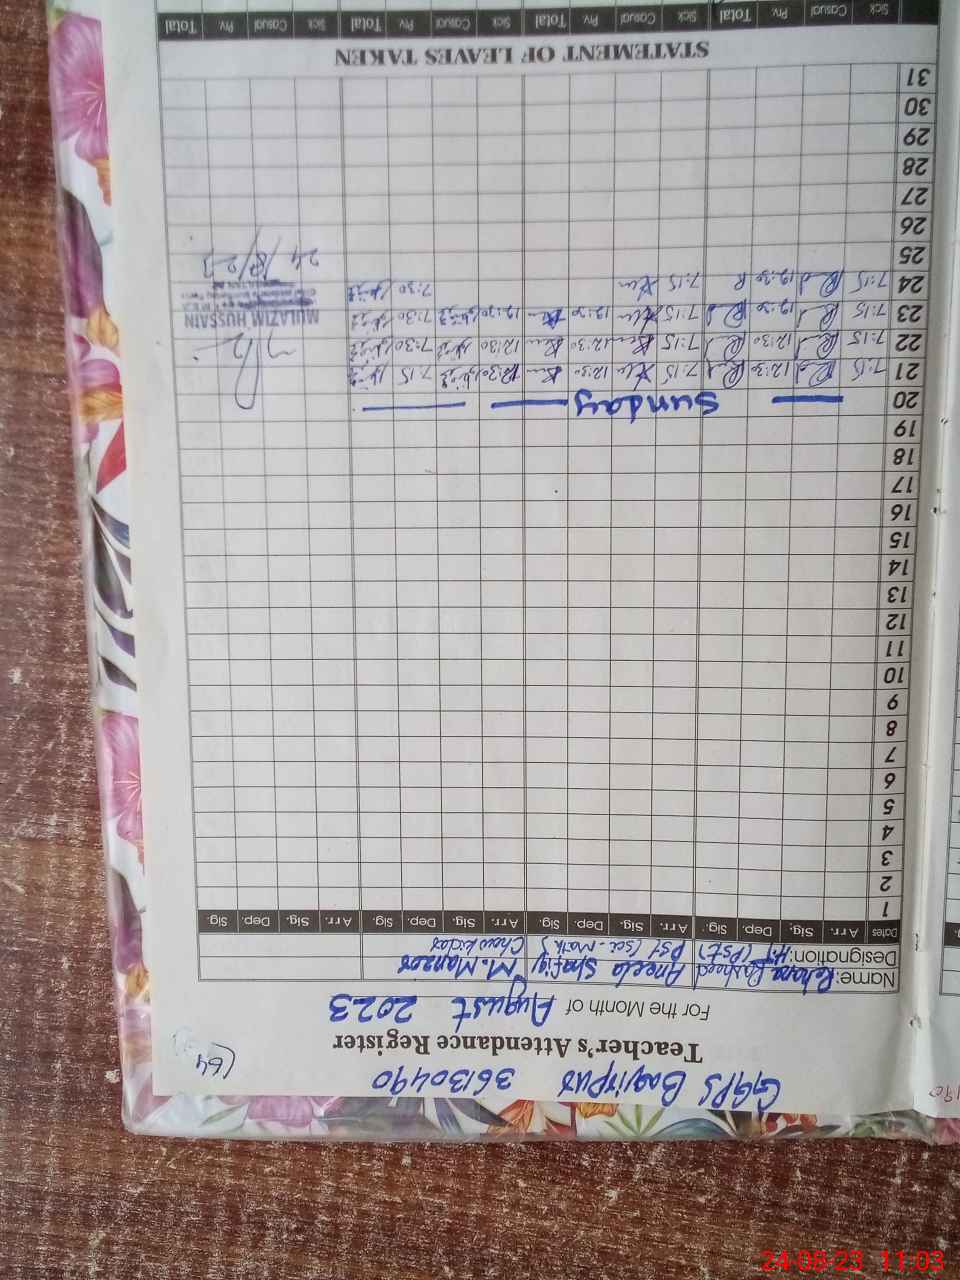 GGPS Baqirpur 36130490
(64
Teacher's Attendance Register
For the Month of August 2023
Name: Rehana Rasheed Aneela Shafiq M. Manzoor
Designation: HT (PST) PST (sci-Math) Chowkidar
Dates Arr. Sig. Dep. Sig. Arr. Sig. Dep. Sig. Arr. Sig. Dep. Sig. Arr. Sig. Dep. Sig.
1
2
3
4
5
6
7
8
9
10
11
12
13
14
15
16
17
18
19
20 Sunday
21 7:15 12:30 7:15 12:30 7:15 12:30
22 7:15 12:30 7:15 12:30 7:30 12:30
23 7:15 12:30 7:15 12:30 7:30 12:30
24 7:15 12:30 7:15 7:30
MULAZIM HUSSAIN
24/8/23
25
26
27
28
29
30
31
STATEMENT OF LEAVES TAKEN
Sick Casual Prv. Total Sick Casual Prv. Total Sick Casual Prv. Total Sick Casual Prv. Total
24-08-23 11:03